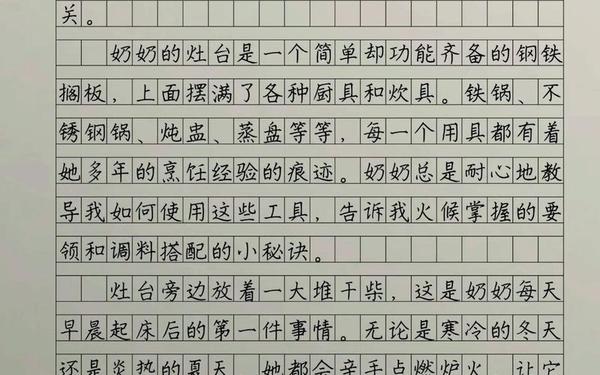 关。
奶奶的灶台是一个简单却功能齐备的钢铁
搁板，上面摆满了各种厨具和炊具。铁锅、不
锈钢锅、炖盅、蒸盘等等，每一个用具都有着
她多年的烹饪经验的痕迹。奶奶总是耐心地教
导我如何使用这些工具，告诉我火候掌握的要
领和调料搭配的小秘诀。
灶台旁边放着一大堆干柴，这是奶奶每天
早晨起床后的第一件事情。无论是寒冷的冬天
还是炎热的夏天，她都会亲手点燃炉火，让它